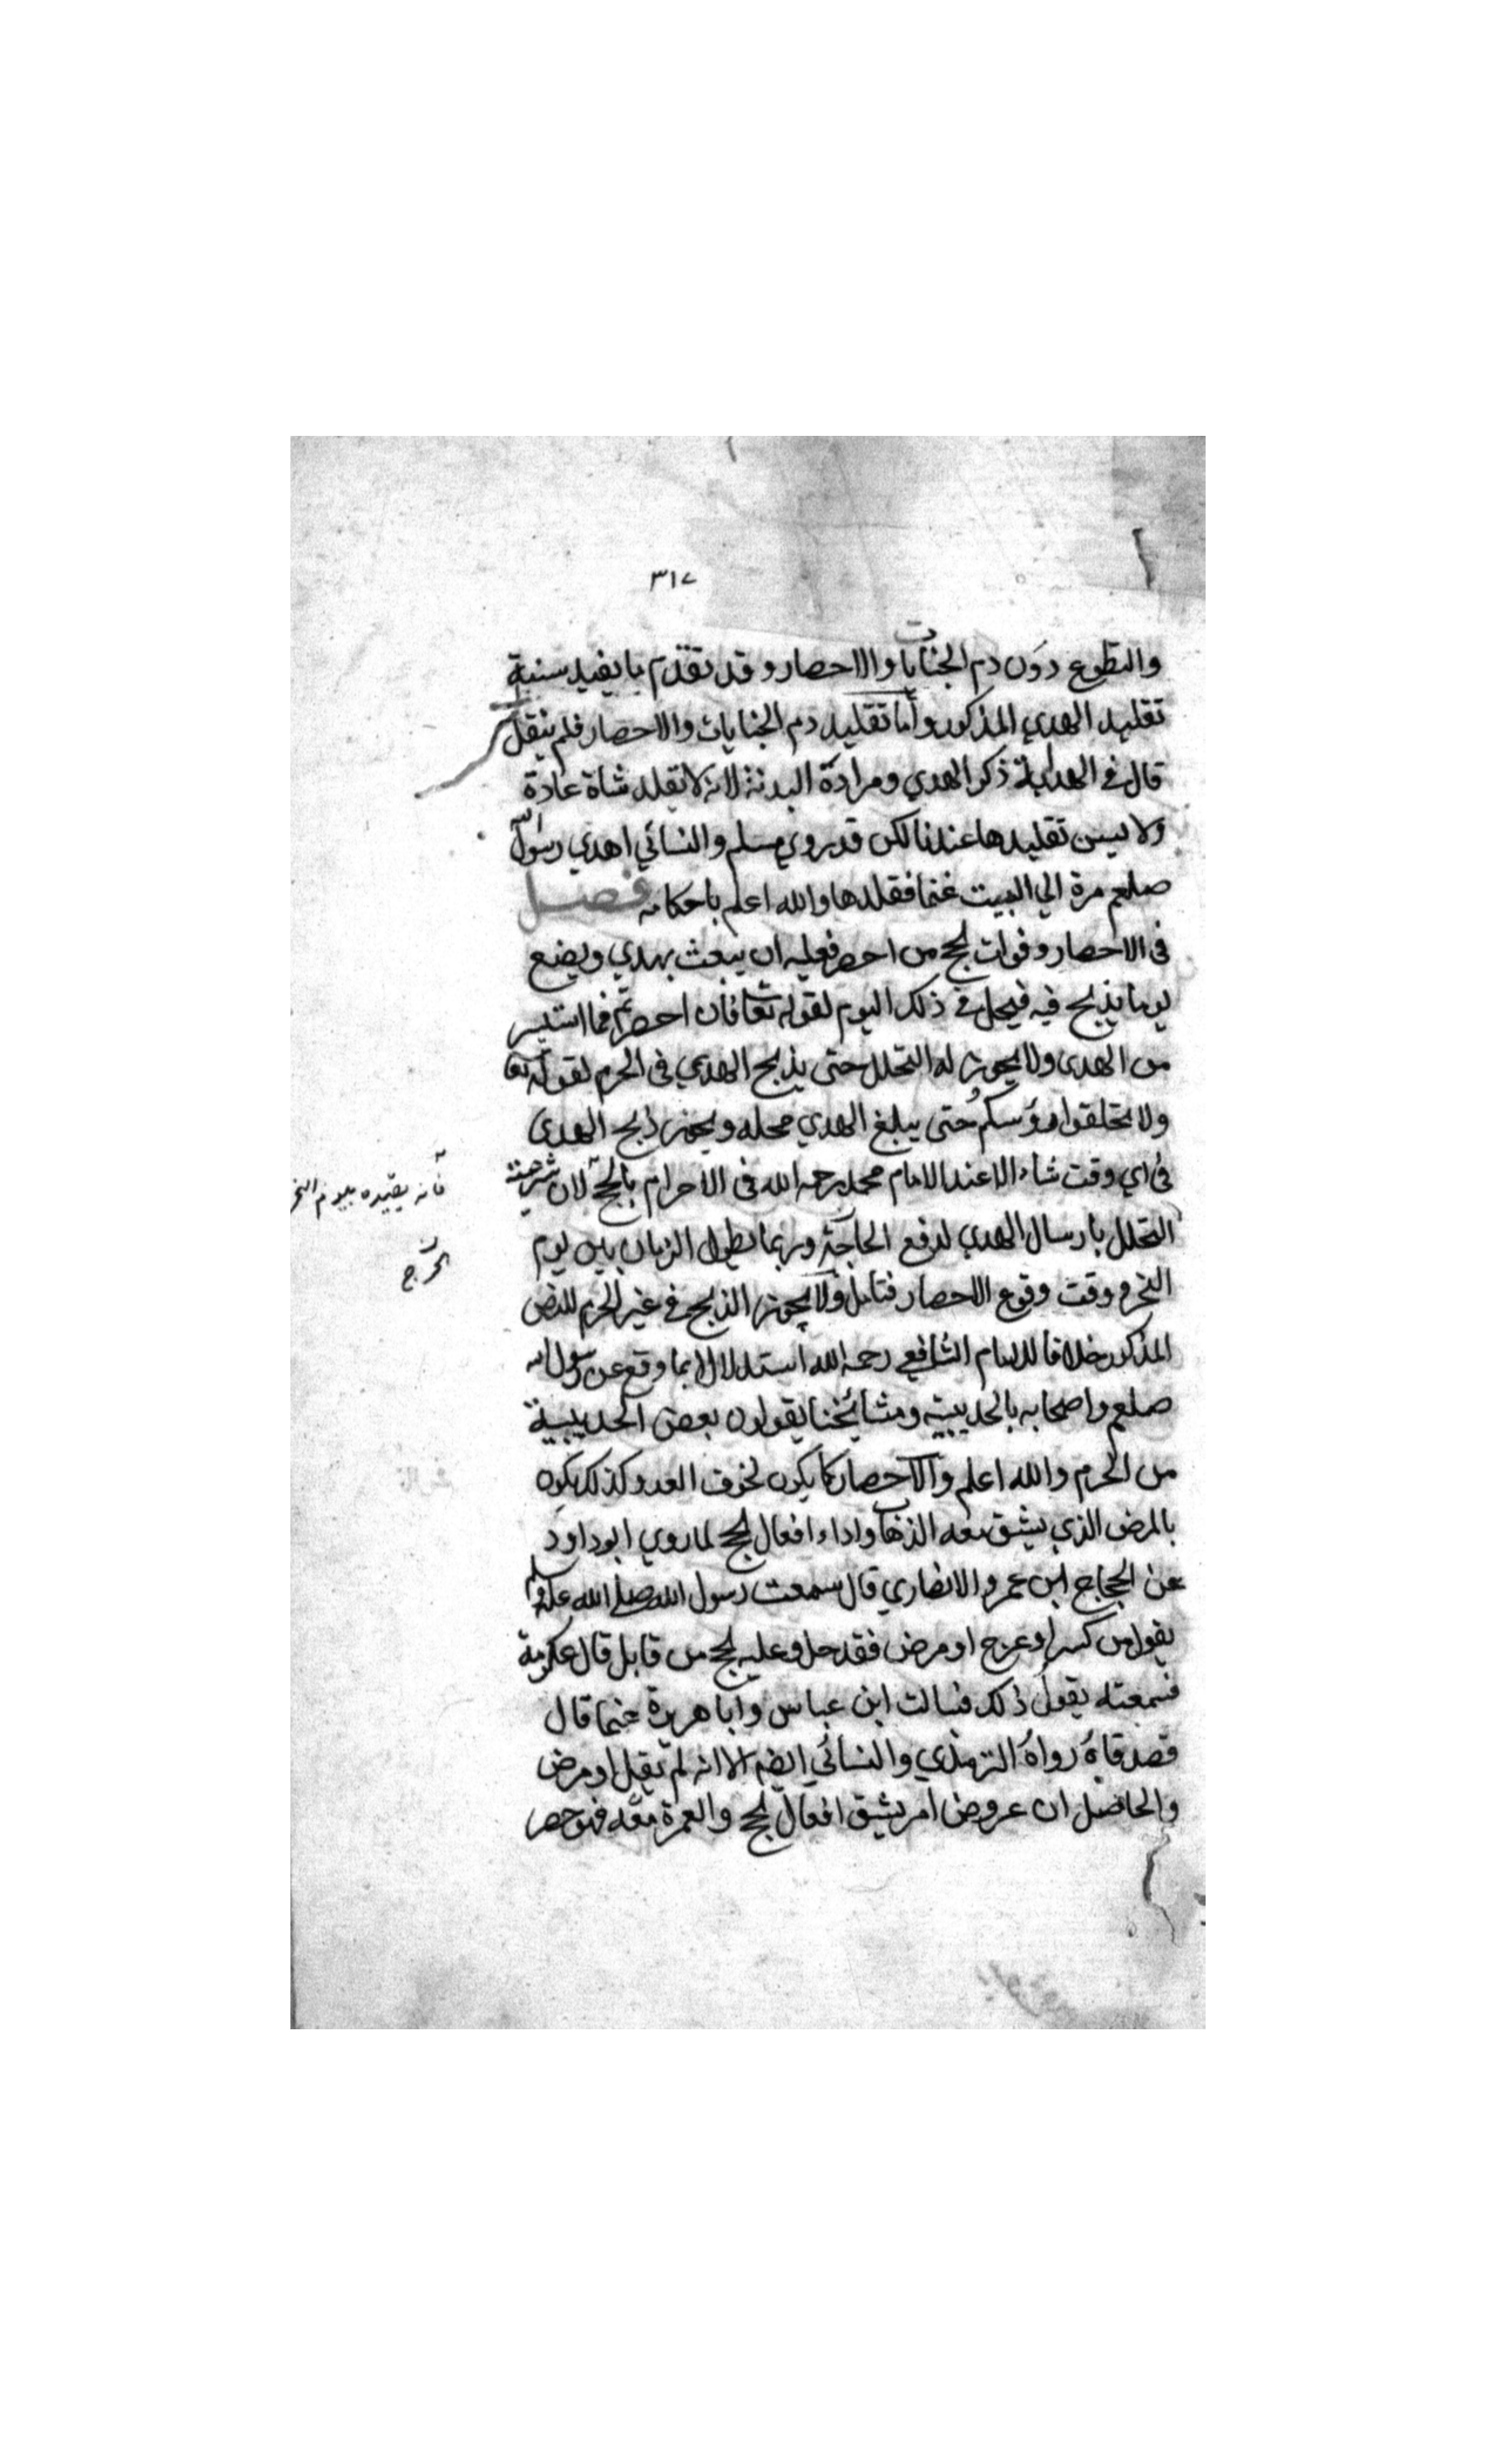 ٣١٧
والتطوع دون دم الجنايات والاحصار وقد تقدم ما يفيد سنية
تقليد الهدي المذكور وأما تقليد دم الجنايات والاحصار فلم ينقل
قال في الهداية ذكر الهدي ومراده البدنة لانه لا تقلد شاة عادة
ولا يسن تقليدها عندنا لكن قد روي مسلم والنسائي اهدي رسول الله
صلعم مرة الي البيت غنما فقلدها والله اعلم باحكامه فصل
في الاحصار وفوات الحج من احصر فعليه ان يبعث بهدي ويضع
يوما يذبح فيه فيحل في ذلك اليوم لقوله تعا فان احصرتم فما استيسر
من الهدى ولا يجوز له التحلل حتى يذبح الهدي في الحرم لقوله تعا
ولا تحلقوا رؤسكم حتى يبلغ الهدي محله ويجوز ذبح الهدى
في اي وقت شاء الا عند الامام محمد رحمه الله في الاحرام بالحج لان شرعية
فانه يقيده بيوم النحر
التحلل بارسال الهدي لدفع الحاجة وربما يطول الزمان بين يوم
الحرج
النحر و وقت وقوع الاحصار فتامل ولا يجوز الذبح في غير الحرم للنص
المذكور خلافا للامام الشافعي رحمه الله استدلالا بما وقع عن رسول الله
صلعم واصحابه بالحديبية ومشائخنا يقولون بعض الحديبية
من الحرم والله اعلم والاحصار كما يكون لخوف العدو كذلك يكون
بالمرض الذي يشق معه الذهاب واداء افعال الحج لما روي ابو داود
عن الحجاج ابن عمرو الانصاري قال سمعت رسول الله صلى الله عليه وسلم
يقول من كسر او عرج او مرض فقد حل وعليه الحج من قابل قال عكرمة
فسمعته يقول ذلك فسالت ابن عباس وابا هريرة عنما قال
فصدقاه رواه الترمذي والنسائي ايضا الا انه لم يقل او مرض
والحاصل ان عروض امر يشق افعال الحج والعمرة معه فهو حصر